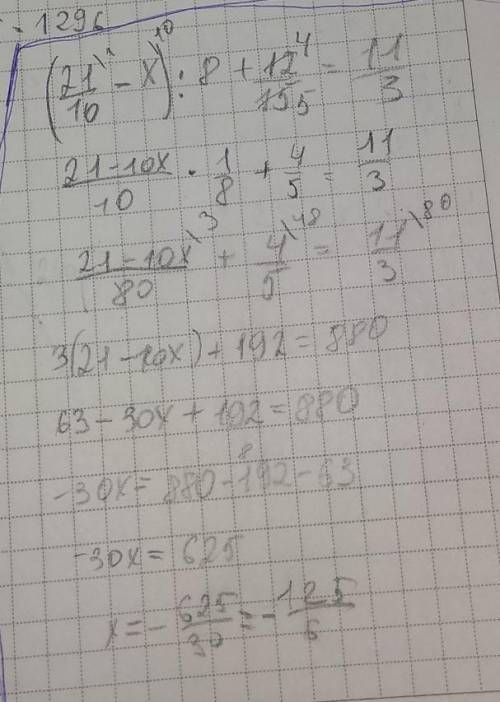 - 1296
(21/10 \1 - x \10) : 8 + 12 4/15 5 = 11/3
21-10x/10 · 1/8 + 4/5 = 11/3
21-10x/80 \3 + 4/5 \48 = 11/3 \80
3(21-10x)+192=880
63-30x+192=880
-30x=880-192-63
-30x=625
x=-625/30=-125/6